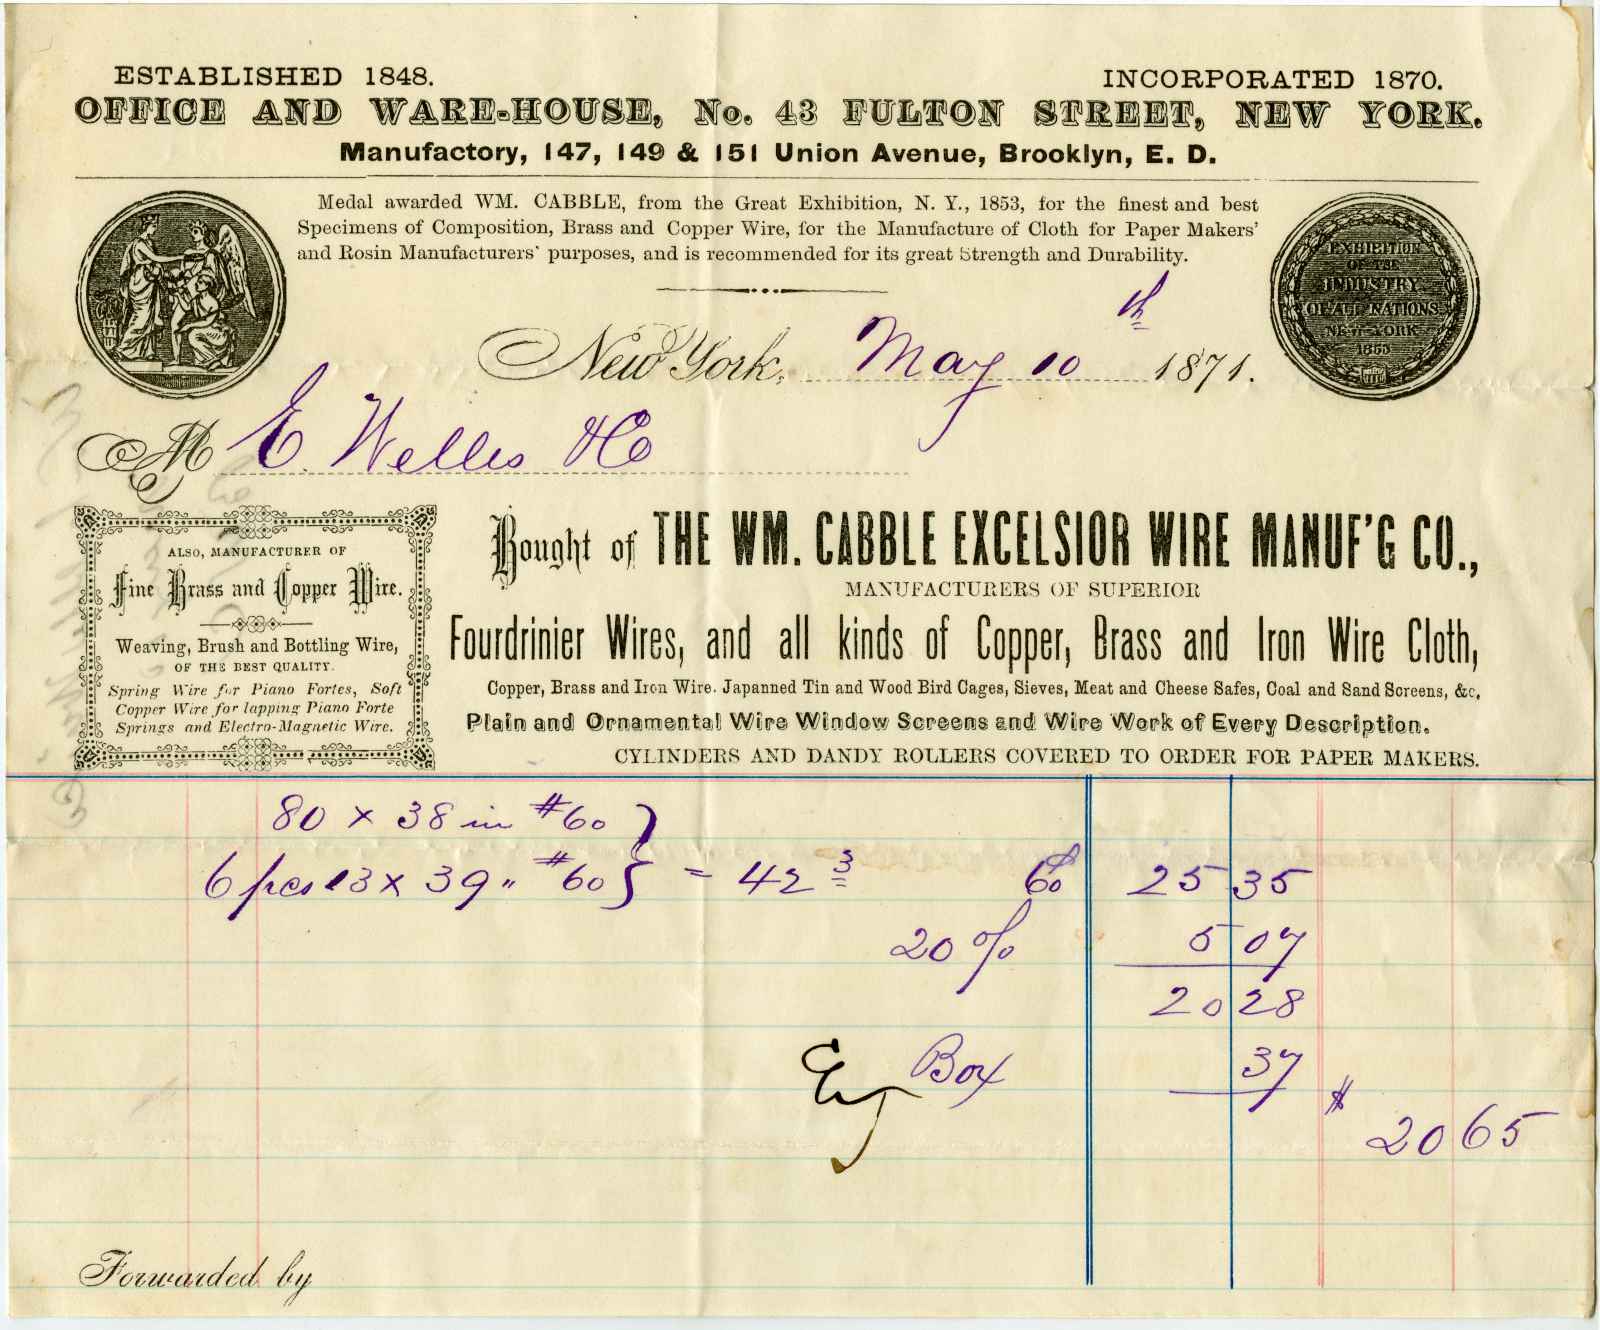 ESTABLISHED 1848. INCORPORATED 1870.
OFFICE AND WARE-HOUSE, No. 43 FULTON STREET, NEW YORK.
Manufactory, 147, 149 & 151 Union Avenue, Brooklyn, E. D.
Medal awarded WM. CABBLE, from the Great Exhibition, N. Y., 1853, for the finest and best
Specimens of Composition, Brass and Copper Wire, for the Manufacture of Cloth for Paper Makers'
and Rosin Manufacturers' purposes, and is recommended for its great Strength and Durability.
EXHIBITION
OF THE
INDUSTRY
OF ALL NATIONS
NEW-YORK
1853
New York, May 10th 1871.
M E. Welles & Co
ALSO, MANUFACTURER OF
Fine Brass and Copper Wire.
Weaving, Brush and Bottling Wire,
OF THE BEST QUALITY.
Spring Wire for Piano Fortes, Soft
Copper Wire for lapping Piano Forte
Springs and Electro-Magnetic Wire.
Bought of THE WM. CABBLE EXCELSIOR WIRE MANUF'G CO.,
MANUFACTURERS OF SUPERIOR
Fourdrinier Wires, and all kinds of Copper, Brass and Iron Wire Cloth,
Copper, Brass and Iron Wire. Japanned Tin and Wood Bird Cages, Sieves, Meat and Cheese Safes, Coal and Sand Screens, &c,
Plain and Ornamental Wire Window Screens and Wire Work of Every Description.
CYLINDERS AND DANDY ROLLERS COVERED TO ORDER FOR PAPER MAKERS.
80 x 38 in #60
6 pcs 13 x 39 " #60 } = 42 3 60¢ 25 35
20 % 5 07
20 28
Box 37
$ 20 65
Forwarded by